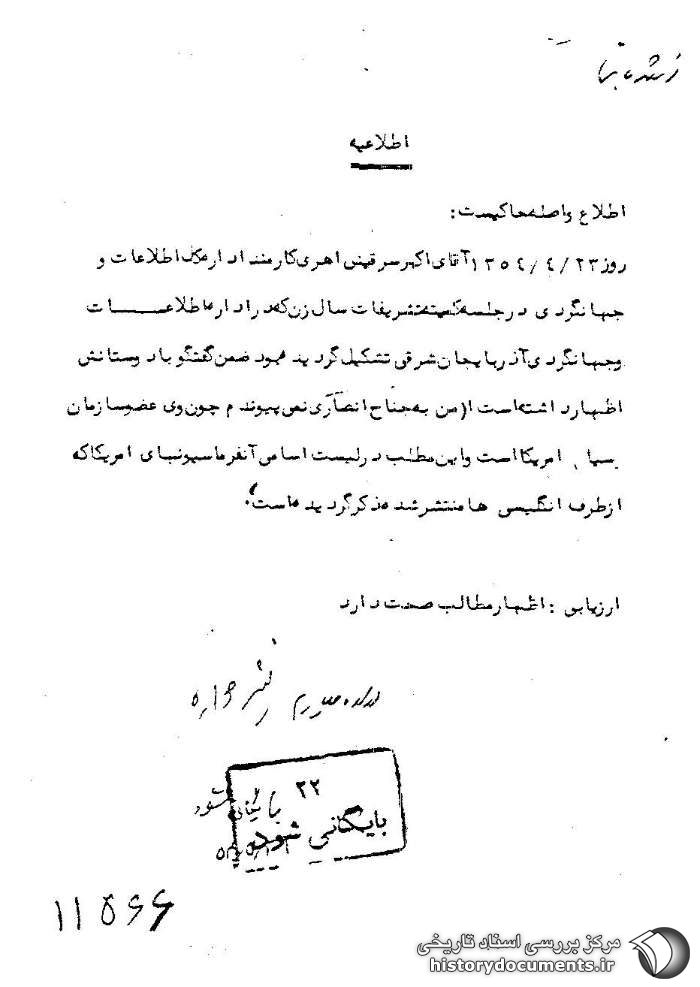 اطلاعیه
اطلاع واصله حاکیست:
روز ۱۳۵۴/۴/۲۳ آقای اکبر سرقینی اهری کارمند اداره کل اطلاعات و
جهانگردی در جلسه کمیته تشریفات سال زن که در اداره اطلاعات
و جهانگردی آذربایجان شرقی تشکیل گردیده بود ضمن گفتگو با دوستانش
اظهار داشته است (من به جناح انصاری نمی پیوندم چون وی عضو سازمان
سیا امریکا است و این مطلب در لیست اسامی آنفرماسیونهای امریکا که
از طرف انگلیسی ها منتشر شده ذکر گردیده است.
ارزیابی: اظهار مطالب صحت دارد
۲۲
بایگانی شود
بایگانی شود
۱۱۵۶۶
مرکز بررسی اسناد تاریخی
historydocuments.ir